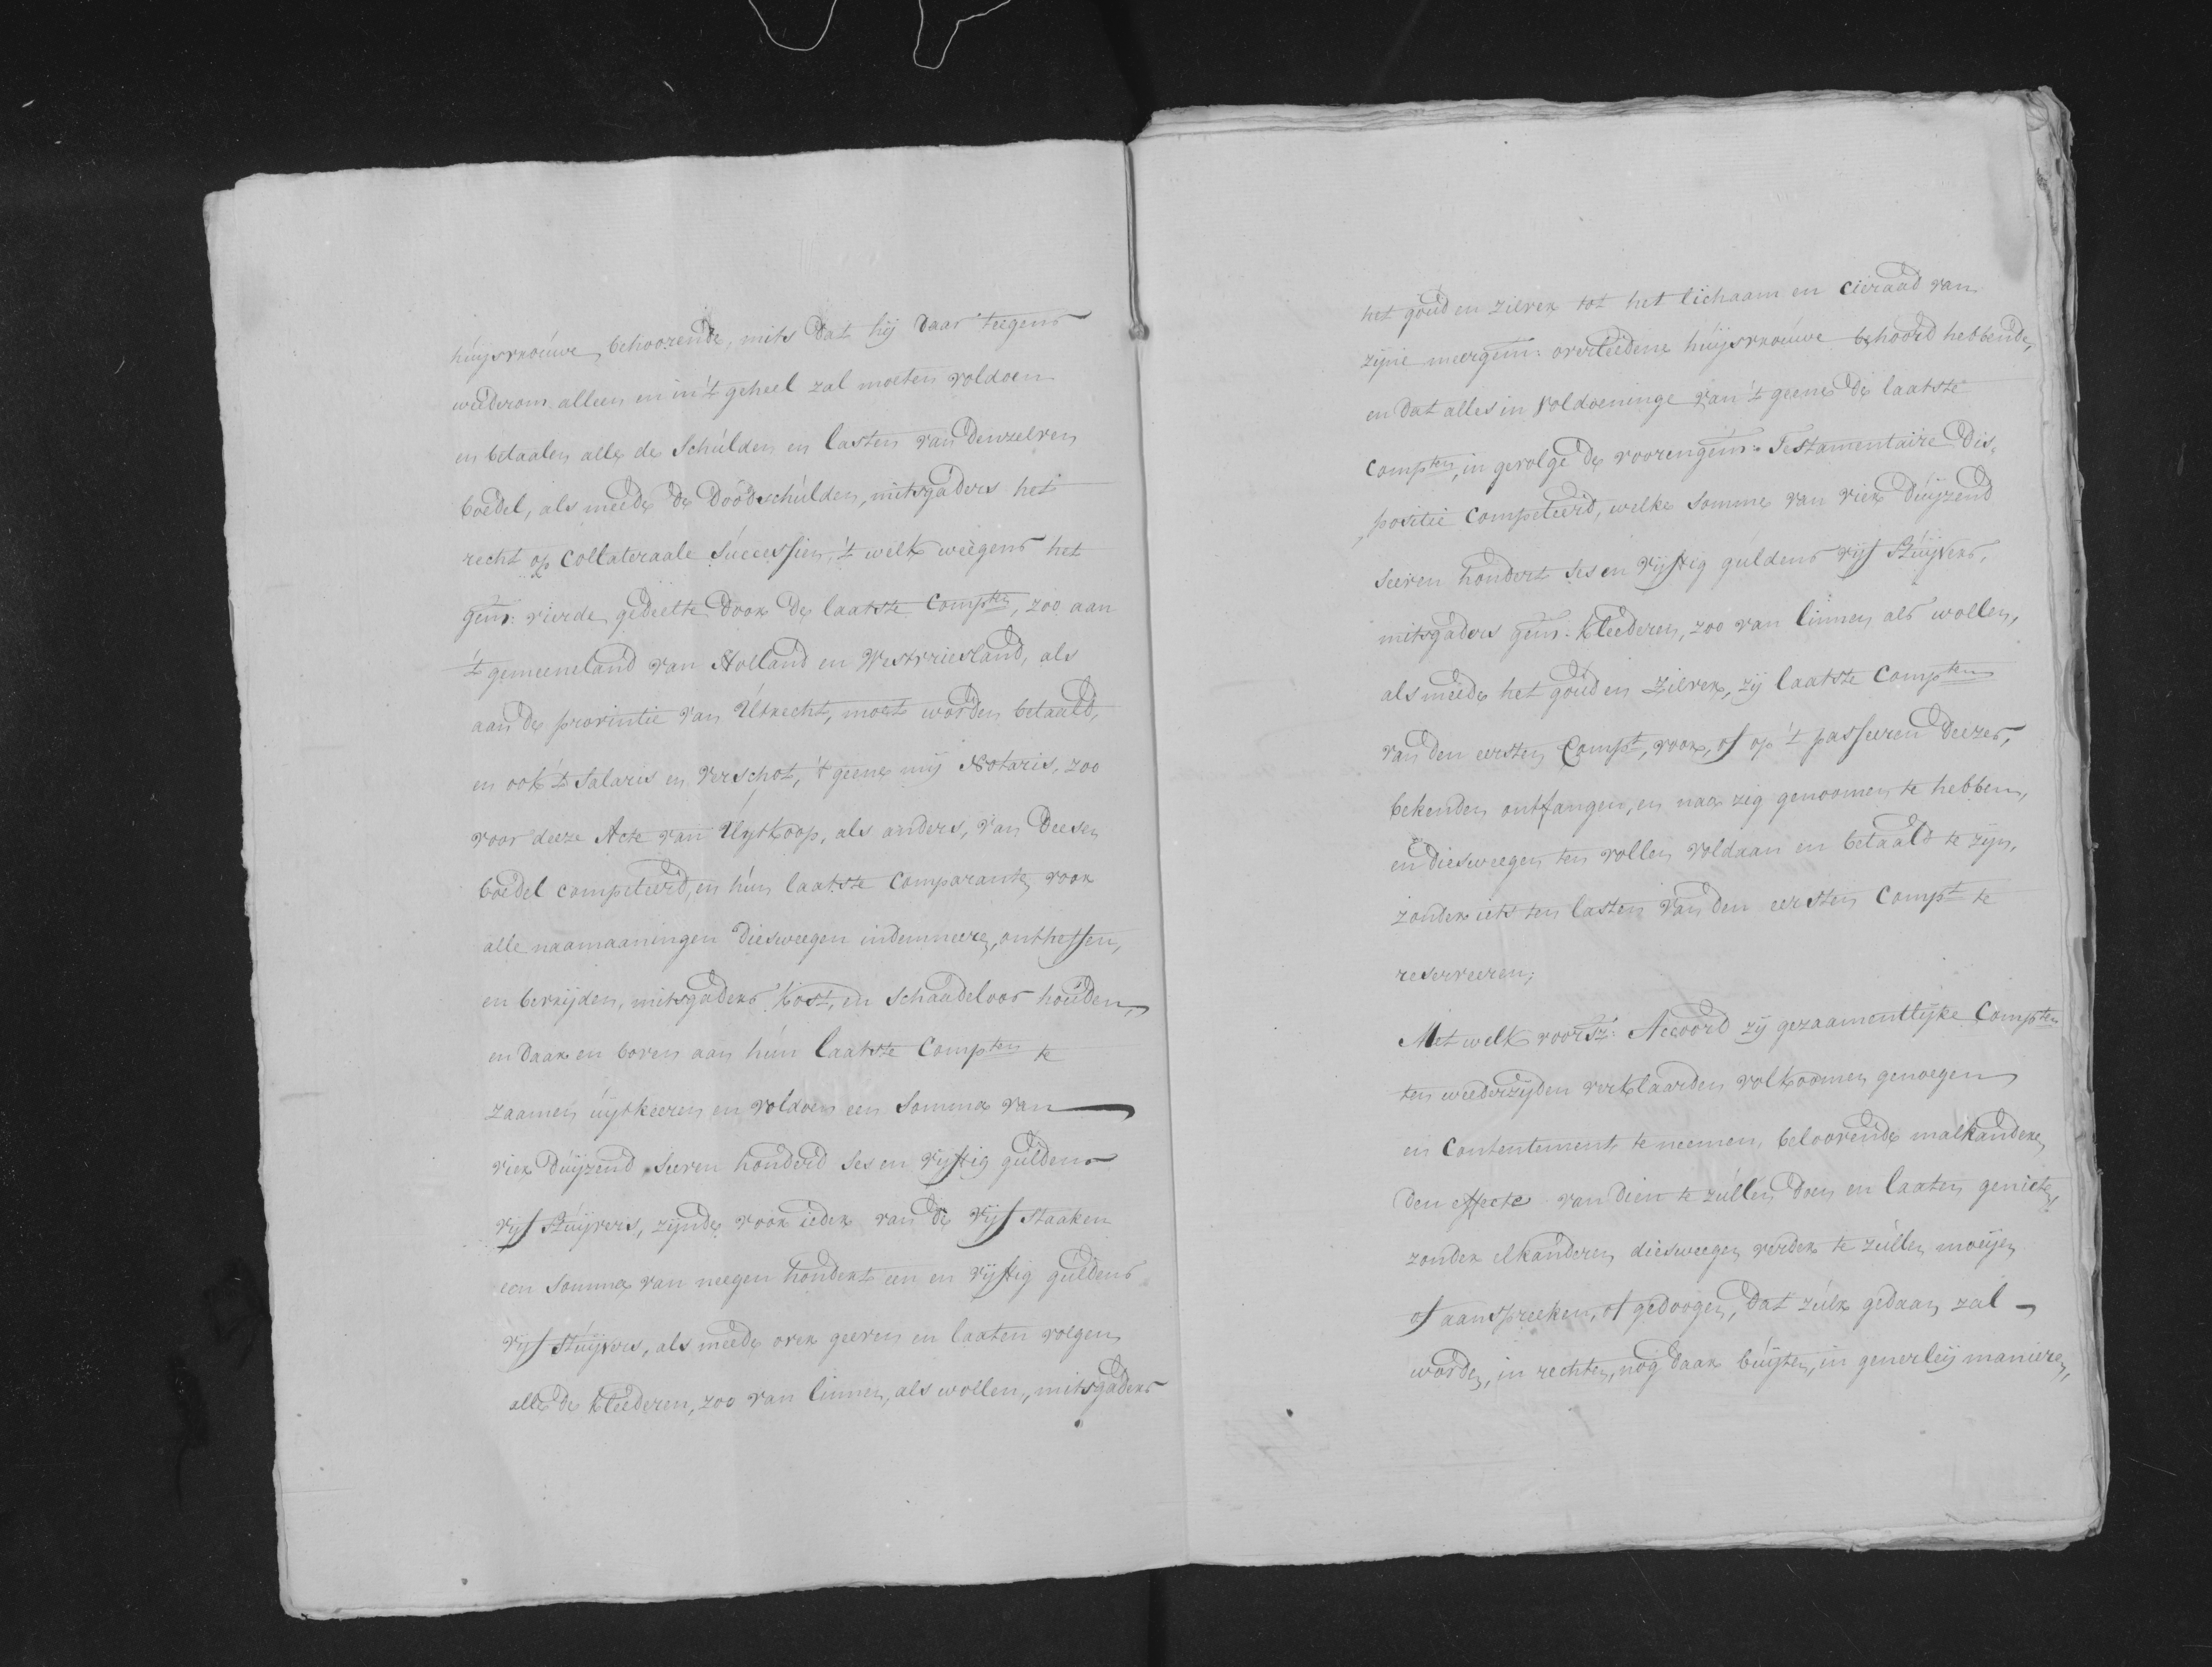 huijsvrouwe, behoorende, mits dat hij daar teegens
weederom alleen en in 't geheel zal moeten voldoen
en betaalen alle de Schulden en lasten van denzelven
boedel, als meede de Doodschulden, mitsgaders het
recht op Collateraale Successien, 't welk weegens het
gem: vierde gedeelte door de laatste Compten, zoo aan
't gemeeneland van Holland en Westvriesland, als
aan de provintie van Utrecht, moet worden betaald,
en ook 't Salaris en Verschot, 't geene mij Notaris, zoo
voor deeze Acte van Uijtkoop, als anders, van deesen
boedel competeerd, en hun laatste Comparanten voor
alle naamaaningen diesweegen indemneeren, ontheffen,
en bevrijden, mitsgaders kost, en schaadeloos houden,
en daar en boven aan hun laatste Compten te
zaamen uijtkeeren en voldoen een Somma van
vier duijzend seeven honderd ses en vijftig guldens
vijf stuijvers, zijnde voor ieder van de vijf staaken
een Somma van neegen hondert een en vijftig guldens
vijf stuijvers, als meede over geeven en laaten volgen
alle de kleederen, zoo van linnen, als wollen, mitsgaders
het goud en zilver tot het lichaam en cieraad van
zijne meergem: overleedene huijsvrouwe behoord hebbende,
en dat alles in voldoeninge van 't geene de laatste
Compten, in gevolge de voorengem: Testamentaire Dis,
positie Competeerd, welke somme van vier duijzend
seeven hondert ses en vijftig guldens vijf Stuijvers,
mitsgaders gem: kleederen, zoo van linnen als wollen,
als meede het goud en Zilver, zij laatste Compten
van den eersten Compt, voor, of op 't passeeren deezes,
bekenden ontfangen, en naar zig genoomen te hebben,
en diesweegen ten vollen voldaan en betaald te zijn,
zonder iets ten lasten van den eersten Compt te
reserveeren;
Met welk voorsz: Accoord zij gezaamentlijke Compten
ten weederzijden verklaarden volkoomen genoegen
en Contentement te neemen, beloovende malkanderen
den effecte van dien te zullen doen en laaten genieten,
zonder elkanderen diesweegen verder te zullen moeijen
of aanspreeken, of gedoogen, dat zulx gedaan zal
worden, in rechten, nog daar buijten, in generleij manieren,